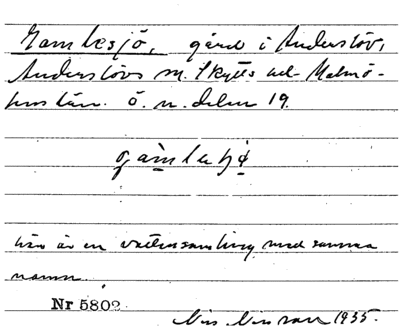 Gamlesjö, gård i Anderslöv,
Anderslövs sn. Skytts hd. Malmö-
hus län. Ö. n. delen 19.
gàmlesjö
här är en vattensamling med samma
namn.
Nr 5802
Nils Nilsson 1935.